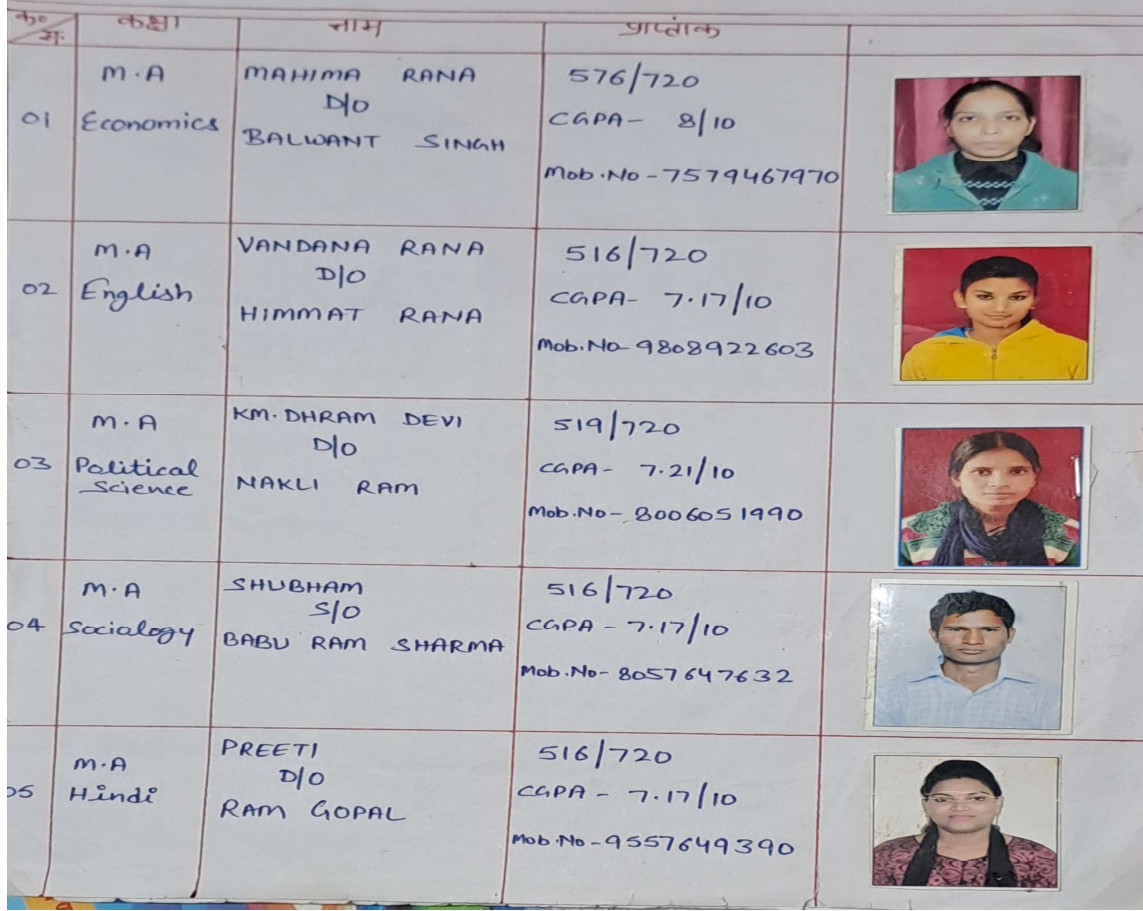 क्र० सं. कक्षा नाम प्राप्तांक
01
M.A
Economics
MAHIMA RANA
D/O
BALWANT SINGH
576/720
CGPA- 8/10
Mob.No-7579467970
02
M.A
English
VANDANA RANA
D/O
HIMMAT RANA
516/720
CGPA- 7.17/10
Mob.No-9808922603
03
M.A
Political
Science
KM. DHRAM DEVI
D/O
NAKLI RAM
519/720
CGPA- 7.21/10
Mob.No-8006051990
04
M.A
Socialogy
SHUBHAM
S/O
BABU RAM SHARMA
516/720
CGPA-7.17/10
Mob.No-8057647632
05
M.A
Hindi
PREETI
D/O
RAM GOPAL
516/720
CGPA-7.17/10
Mob.No-9557649390